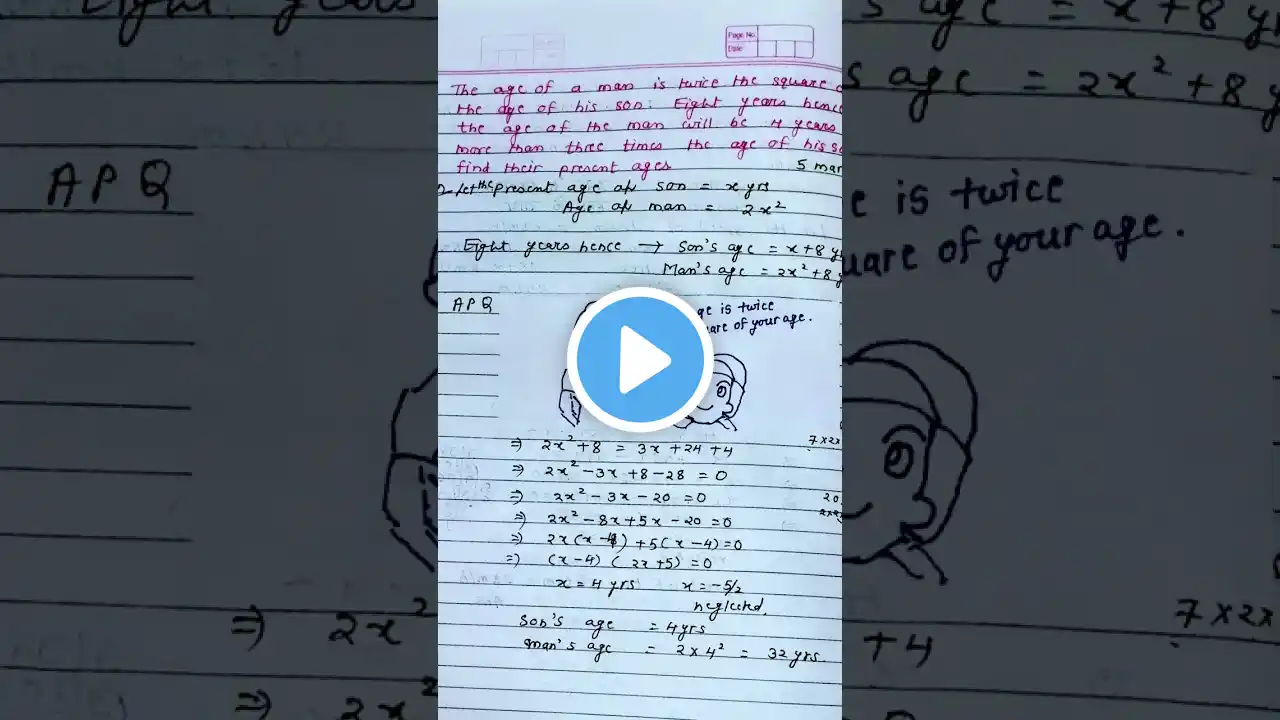 Page No.
Date
The age of a man is twice the square
the age of his son. Eight years hence
the age of the man will be 4 years
more than three times the age of his
find their present ages
5
let the present age of son = x yrs
Age of man = 2x²
Eight years hence → Son's age = x+8
Man's age = 2x²+8
APQ
is twice
of your age.
7×2
⇒ 2x²+8 = 3x+24+4
⇒ 2x²-3x+8-28 = 0
⇒ 2x²-3x-20 = 0
20
⇒ 2x²-8x+5x-20=0
⇒ 2x(x-4)+5(x-4)=0
⇒ (x-4)(2x+5)=0
x=4yrs x=-5/2
neglected.
Son's age = 4yrs
Man's age = 2×4² = 32yrs.
Eight years
age = x+8
age = 2x²+8
APQ
is twice
of your age.
7×2x
⇒ 2x²
+4
⇒ 2x²